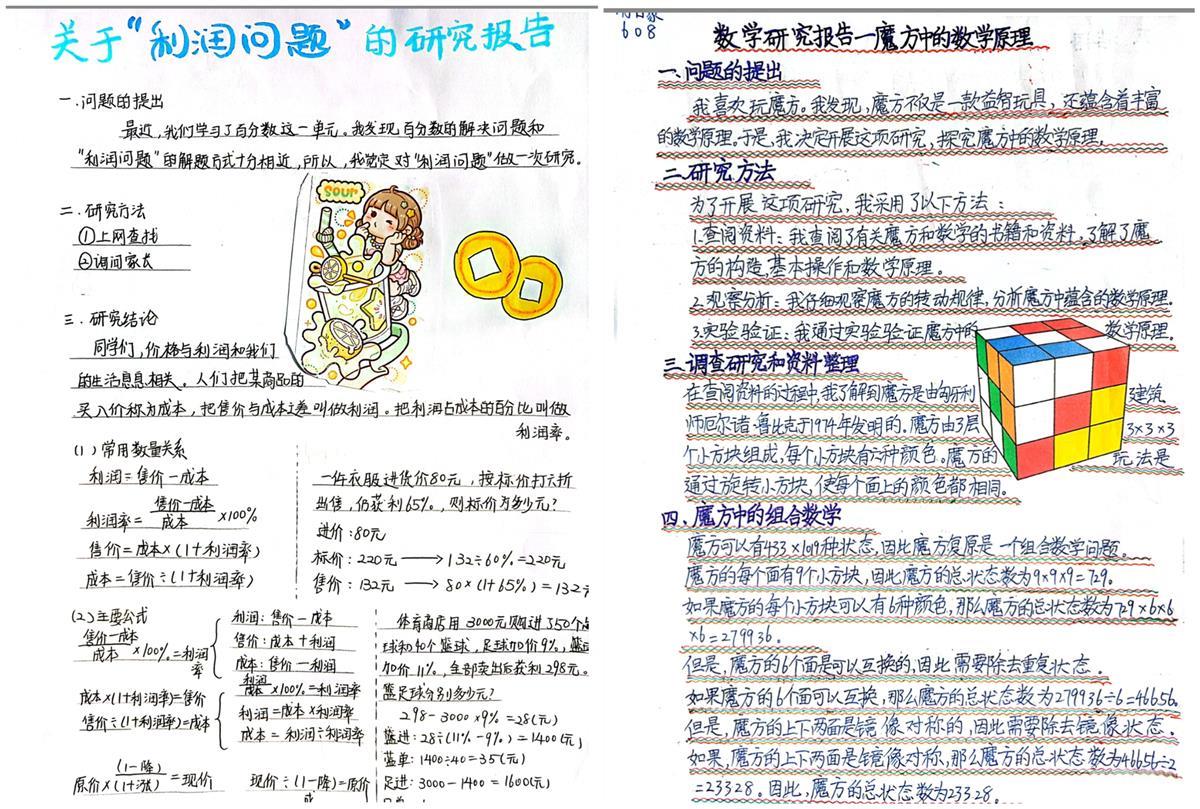 关于“利润问题”的研究报告
一.问题的提出
最近,我们学习了百分数这一单元。我发现百分数的解决问题和
“利润问题”的解题方式十分相近,所以,我决定对“利润问题”做一次研究。
二.研究方法
①上网查找
②询问家长
sour
三.研究结论
同学们,价格与利润和我们
的生活息息相关。人们把某商品的
买入价称为成本,把售价与成本之差叫做利润。把利润占成本的百分比叫做
利润率。
(1)常用数量关系
利润=售价-成本
利润率=售价-成本/成本×100%
售价=成本×(1+利润率)
成本=售价÷(1+利润率)
一件衣服进货价80元,按标价打六折
出售,仍获利65%,则标价为多少元?
进价:80元
标价:220元→132÷60%=220元
售价:132元→80×(1+65%)=132
(2)主要公式
售价-成本/成本×100%=利润率
成本×(1+利润率)=售价
售价÷(1+利润率)=成本
利润:售价-成本
售价:成本+利润
成本:售价-利润
利润/成本×100%=利润率
利润=成本×利润率
成本=利润÷利润率
原价×(1-降)/(1+涨)=现价
现价÷(1-降)=原价
体育商店用3000元购进了50个
球和40个篮球,足球加价9%,
加价11%,全部卖出后获利298元。
篮足球分别多少元?
298-3000×9%=28(元)
篮进:28÷(11%-9%)=1400(元)
篮单:1400÷40=35(元)
足进:3000-1400=1600(元)
608
数学研究报告一魔方中的数学原理
一.问题的提出
我喜欢玩魔方。我发现,魔方不仅是一款益智玩具,还蕴含着丰富
的数学原理。于是,我决定开展这项研究,探究魔方中的数学原理。
二.研究方法
为了开展这项研究,我采用了以下方法:
1.查阅资料:我查阅了有关魔方和数学的书籍和资料,了解了魔
方的构造,基本操作和数学原理。
2.观察分析:我仔细观察魔方的转动规律,分析魔方中蕴含的数学原理.
3.实验验证:我通过实验验证魔方中的数学原理.
三.调查研究和资料整理
在查阅资料的过程中,我了解到魔方是由匈牙利建筑
师厄尔诺·鲁比克于1974年发明的。魔方由3层3×3×3
个小方块组成,每个小方块有六种颜色。魔方的玩法是
通过旋转小方块,使每个面上的颜色都相同。
四、魔方中的组合数学
魔方可以有433×1019种状态,因此魔方复原是一个组合数学问题。
魔方的每个面有9个小方块,因此魔方的总状态数为9×9×9=729.
如果魔方的每个小方块可以有6种颜色,那么魔方的总状态数为729×6×6
×6=279936.
但是,魔方的6个面是可以互换的,因此需要除去重复状态。
如果魔方的6个面可以互换,那么魔方的总状态数为279936÷6=46656.
但是,魔方的上下两面是镜像对称的,因此需要除去镜像状态.
如果,魔方的上下两面是镜像对称,那么魔方的总状态数为46656÷2
=23328。因此,魔方的总状态数为23328.